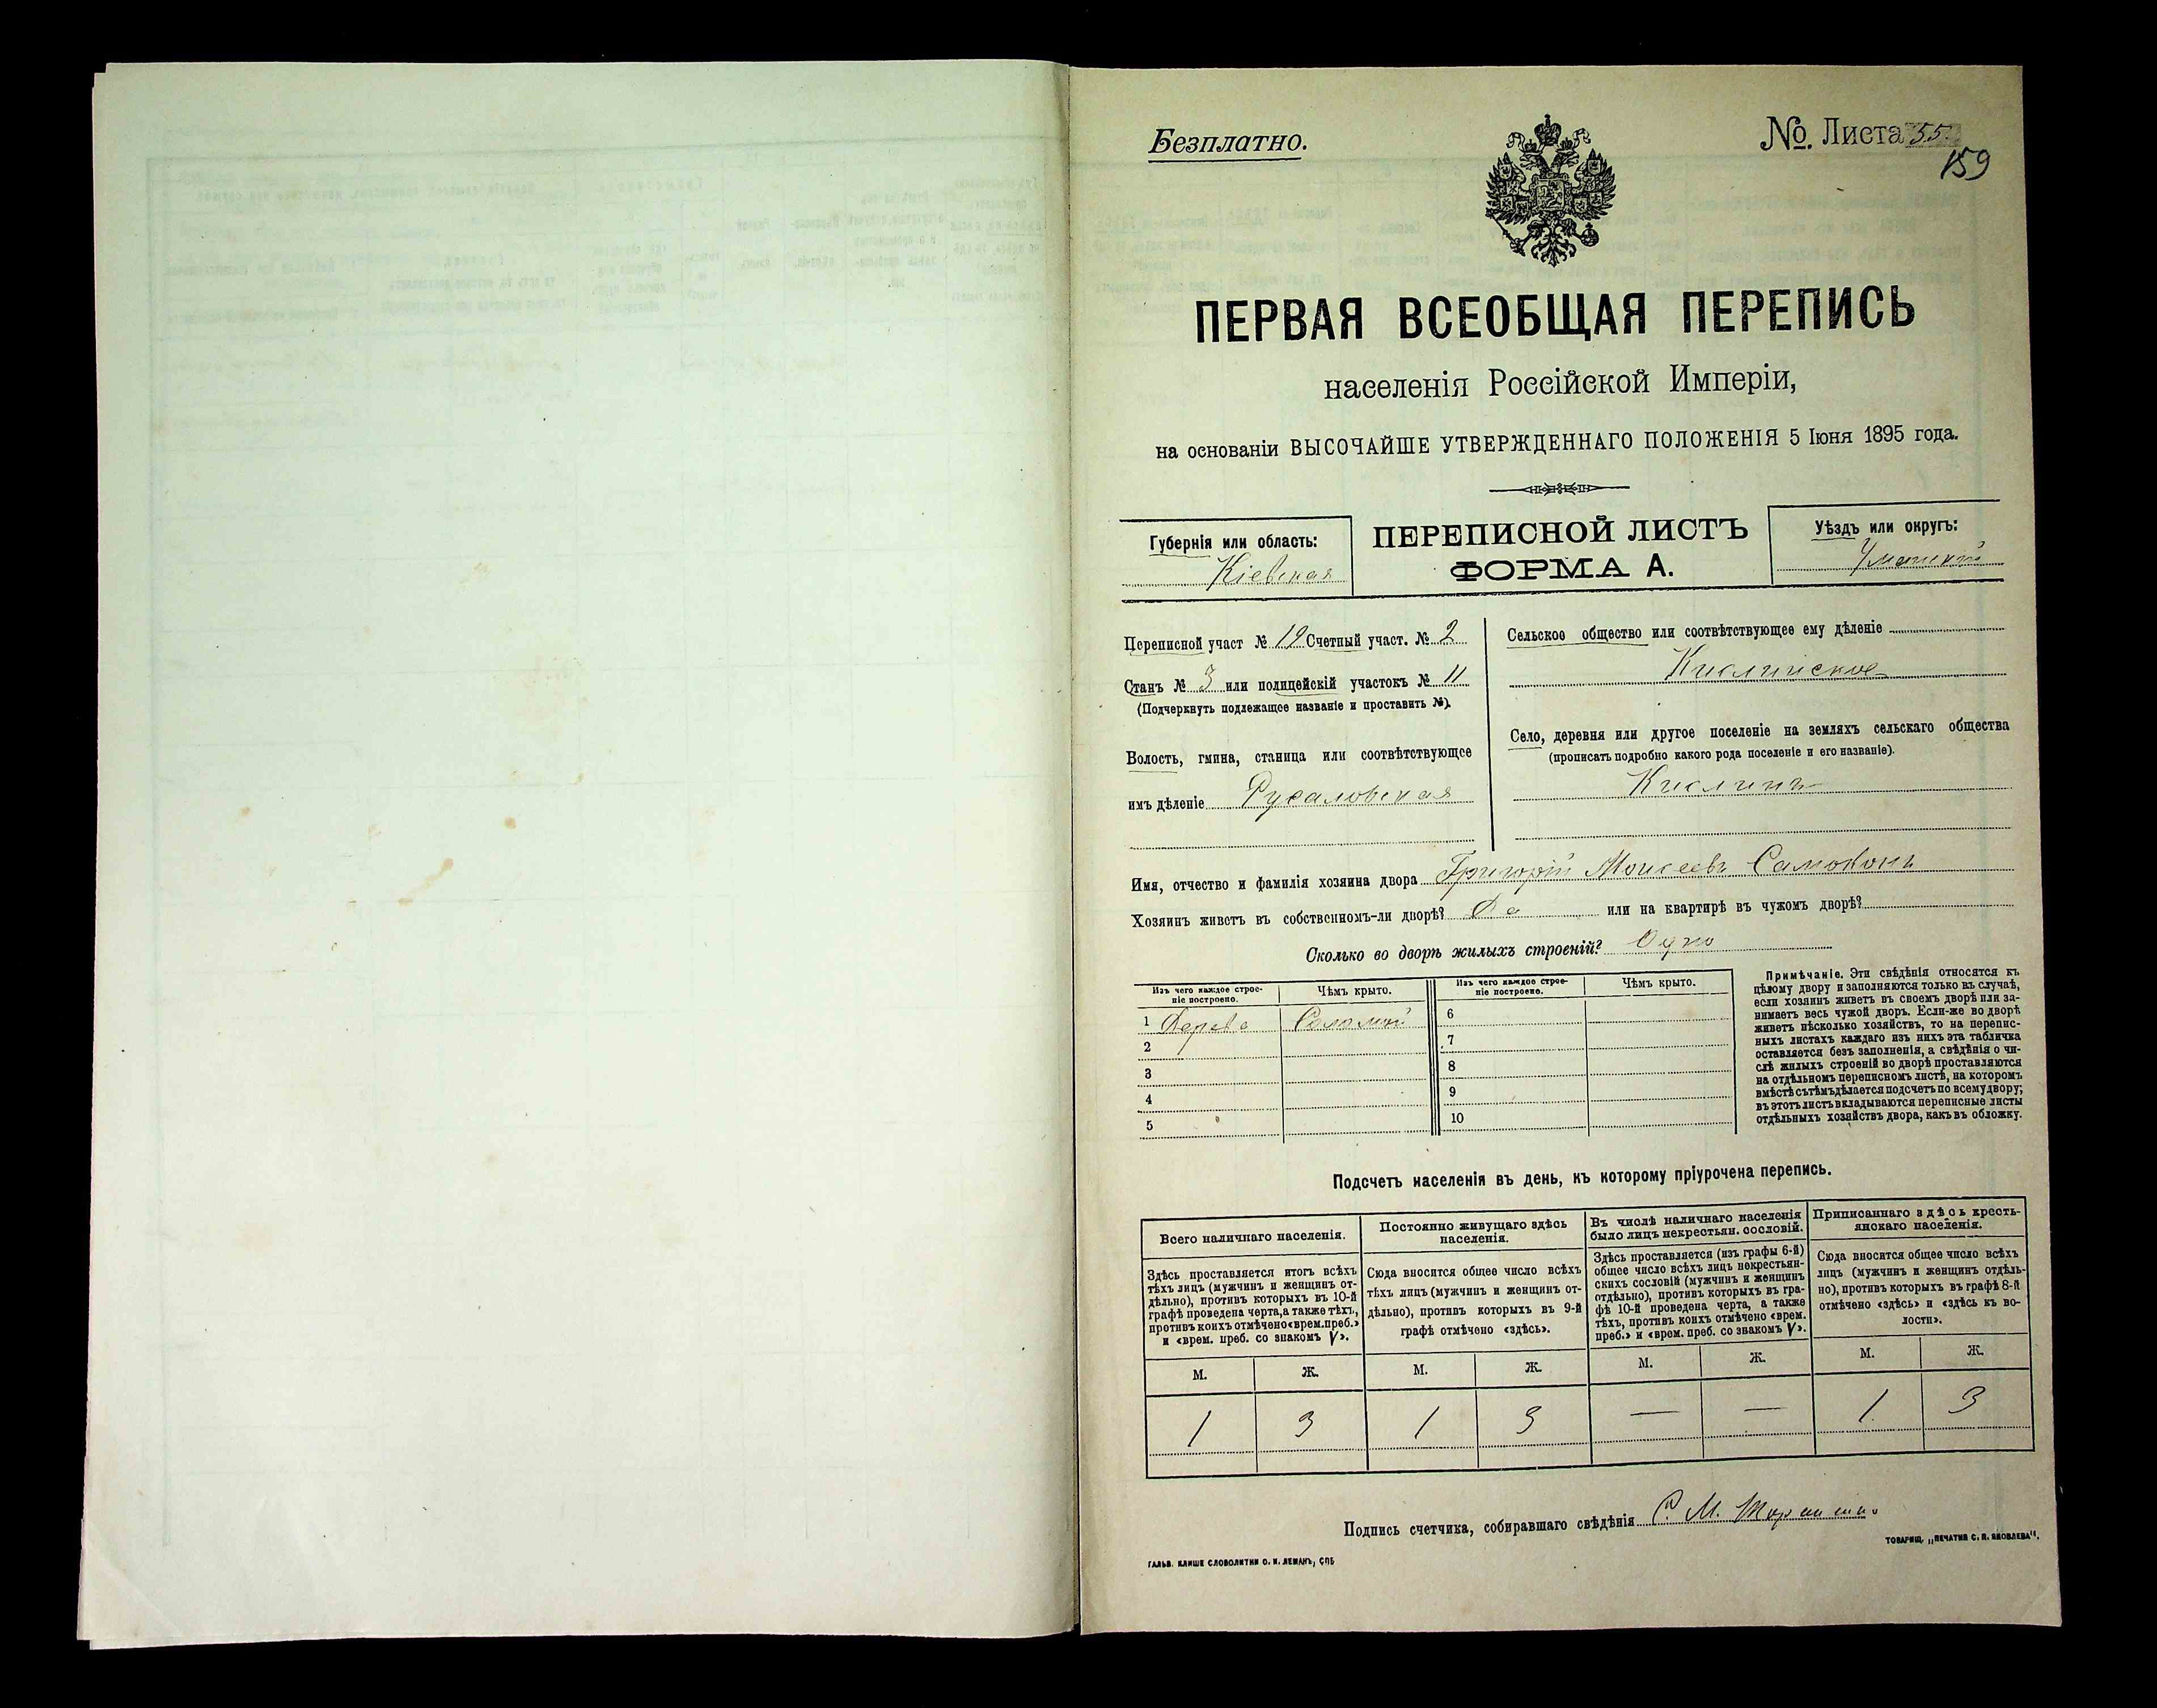 Безплатно.
№. Листа 55.
159
ПЕРВАЯ ВСЕОБЩАЯ ПЕРЕПИСЬ
населенія Россійской Имперіи,
на основаніи ВЫСОЧАЙШЕ УТВЕРЖДЕННАГО ПОЛОЖЕНІЯ 5 Іюня 1895 года.
Губернія или область:
Кіевская
ПЕРЕПИСНОЙ ЛИСТЪ
ФОРМА А.
Уѣздъ или округъ:
Уманскій
Переписной участ № 19 Счетный участ. № 2
Станъ № 3 или полицейскій участокъ № 11
(Подчеркнуть подлежащее названіе и проставить №).
Волость, гмина, станица или соотвѣтствующее
имъ дѣленіе Русаловская
Сельское общество или соотвѣтствующее ему дѣленіе
Кислинское
Село, деревня или другое поселеніе на земляхъ сельскаго общества
(прописать подробно какого рода поселеніе и его названіе).
Кислинъ
Имя, отчество и фамилія хозяина двора Григорій Моисеевъ
Хозяинъ живетъ въ собственномъ-ли дворѣ? Да или на квартирѣ въ чужомъ дворѣ?
Сколько во дворѣ жилыхъ строеній? Одно
Изъ чего каждое строе-
ніе построено.
Чѣмъ крыто.
Изъ чего каждое строе-
ніе построено.
Чѣмъ крыто.
1 Дерева Соломой 6
2 7
3 8
4 9
5 10
Примѣчаніе. Эти свѣдѣнія относятся къ
цѣлому двору и заполняются только въ случаѣ,
если хозяинъ живетъ въ своемъ дворѣ или за-
нимаетъ весь чужой дворъ. Если-же во дворѣ
живетъ нѣсколько хозяйствъ, то на перепис-
ныхъ листахъ каждаго изъ нихъ эта табличка
оставляется безъ заполненія, а свѣдѣнія о чи-
слѣ жилыхъ строеній во дворѣ проставляются
на отдѣльномъ переписномъ листѣ, на которомъ
вмѣстѣ съ тѣмъ дѣлается подсчетъ по всему двору;
въ этотъ листъ вкладываются переписные листы
отдѣльныхъ хозяйствъ двора, какъ въ обложку.
Подсчетъ населенія въ день, къ которому пріурочена перепись.
Всего наличнаго населенія.
Здѣсь проставляется итогъ всѣхъ
тѣхъ лицъ (мужчинъ и женщинъ от-
дѣльно), противъ которыхъ въ 10-й
графѣ проведена черта, а также тѣхъ,
противъ коихъ отмѣчено «врем. преб.»
и «врем. преб. со знакомъ V».
Постоянно живущаго здѣсь
населенія.
Сюда вносится общее число всѣхъ
тѣхъ лицъ (мужчинъ и женщинъ от-
дѣльно), противъ которыхъ въ 9-й
графѣ отмѣчено «здѣсь».
Въ числѣ наличнаго населенія
было лицъ некрестьян. сословій.
Здѣсь проставляется (изъ графы 6-й)
общее число всѣхъ лицъ некрестьян-
скихъ сословій (мужчинъ и женщинъ
отдѣльно), противъ которыхъ въ гра-
фѣ 10-й проведена черта, а также
тѣхъ, противъ коихъ отмѣчено «врем.
преб.» и «врем. преб. со знакомъ V».
Приписаннаго здѣсь кресть-
янскаго населенія.
Сюда вносится общее число всѣхъ
лицъ (мужчинъ и женщинъ отдѣль-
но), противъ которыхъ въ графѣ 8-й
отмѣчено «здѣсь» и «здѣсь къ во-
лости».
М. Ж. М. Ж. М. Ж. М. Ж.
1 3 1 3 — — 1 3
Подпись счетчика, собиравшаго свѣдѣнія
ГАЛЬВ. КЛИШЕ СЛОВОЛИТНИ О. И. ЛЕМАНЪ, СПБ
ТОВАРИЩ. „ПЕЧАТНЯ С. П. ЯКОВЛЕВА".